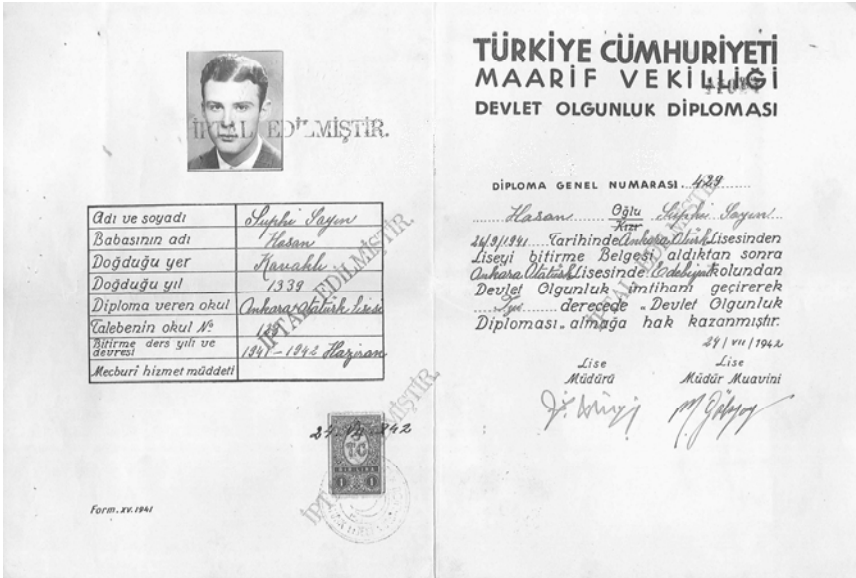 İPTAL EDİLMİŞTİR.
Adı ve soyadı Suphi Sayın
Babasının adı Hasan
Doğduğu yer Kavaklı
Doğduğu yıl 1339
Diploma veren okul Ankara Atatürk Lisesi
Talebenin okul No
Bitirme ders yılı ve
devresi 1941-1942 Haziran
Mecburî hizmet müddeti
İPTAL EDİLMİŞTİR.
942
T.C
BİR LİRA
1 1
İPTAL EDİLMİŞTİR.
Form. xv. 1941
TÜRKİYE CÜMHURİYETİ
MAARİF VEKİLLİĞİ
DEVLET OLGUNLUK DİPLOMASI
DİPLOMA GENEL NUMARASI 429
Hasan Oğlu Suphi Sayın
Kızı
26/9/1941 Tarihinde Ankara Atatürk Lisesinden
Liseyi bitirme Belgesi aldıktan sonra
Ankara Atatürk Lisesinde Edebiyat kolundan
Devlet Olgunluk imtihanı geçirerek
İyi derecede „Devlet Olgunluk
Diploması„ almağa hak kazanmıştır.
İPTAL EDİLMİŞTİR
29/VII/1942
Lise Lise
Müdürü Müdür Muavini